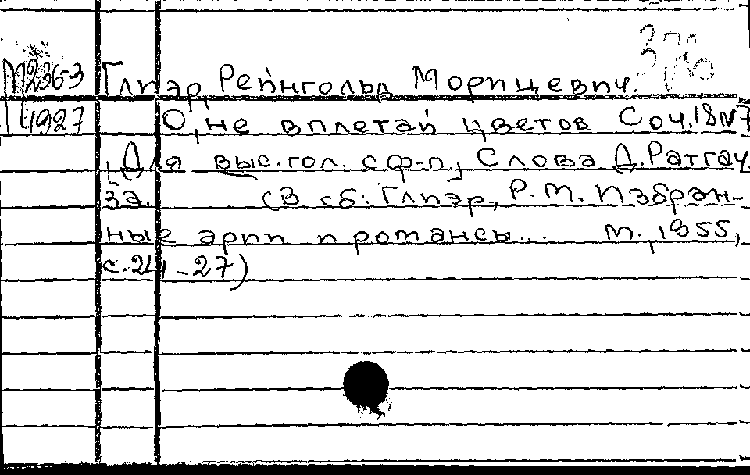 М236-3 Глиэр, Рейнгольд Морицевич.
14927 О, не вплетай цветов Соч. 18 №7
, Для выс. гол. с ф-п., Слова Д. Ратгау-
за. (В сб: Глиэр, Р. М. Избран-
ные арии и романсы... М., 1855,
с. 24-27)